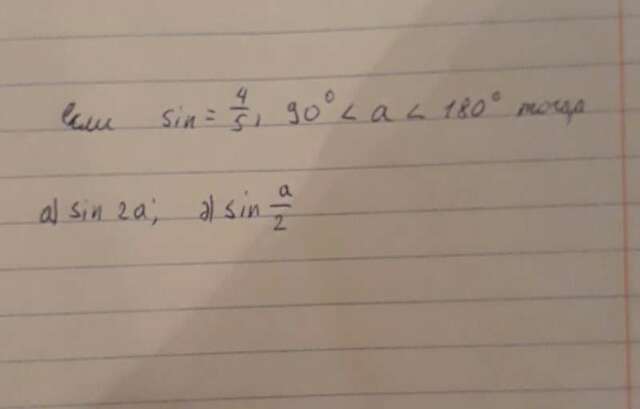 если sin = 4/5, 90° < a < 180° тогда
a) sin 2a; д) sin a/2